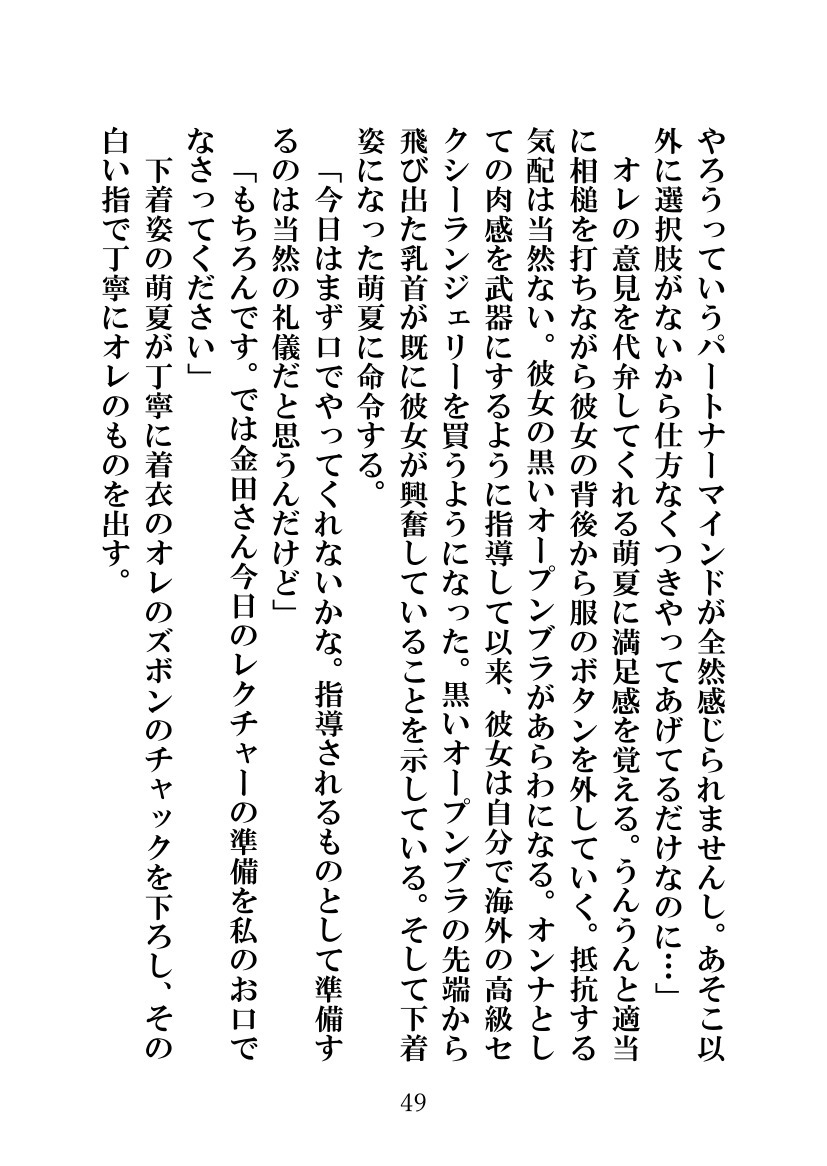 やろうっていうパートナーマインドが全然感じられませんし。あそこ以
外に選択肢がないから仕方なくつきやってあげてるだけなのに…」
　オレの意見を代弁してくれる萌夏に満足感を覚える。うんうんと適当
に相槌を打ちながら彼女の背後から服のボタンを外していく。抵抗する
気配は当然ない。彼女の黒いオープンブラがあらわになる。オンナとし
ての肉感を武器にするように指導して以来、彼女は自分で海外の高級セ
クシーランジェリーを買うようになった。黒いオープンブラの先端から
飛び出た乳首が既に彼女が興奮していることを示している。そして下着
姿になった萌夏に命令する。
「今日はまず口でやってくれないかな。指導されるものとして準備す
るのは当然の礼儀だと思うんだけど」
「もちろんです。では金田さん今日のレクチャーの準備を私のお口で
なさってください」
　下着姿の萌夏が丁寧に着衣のオレのズボンのチャックを下ろし、その
白い指で丁寧にオレのものを出す。
49